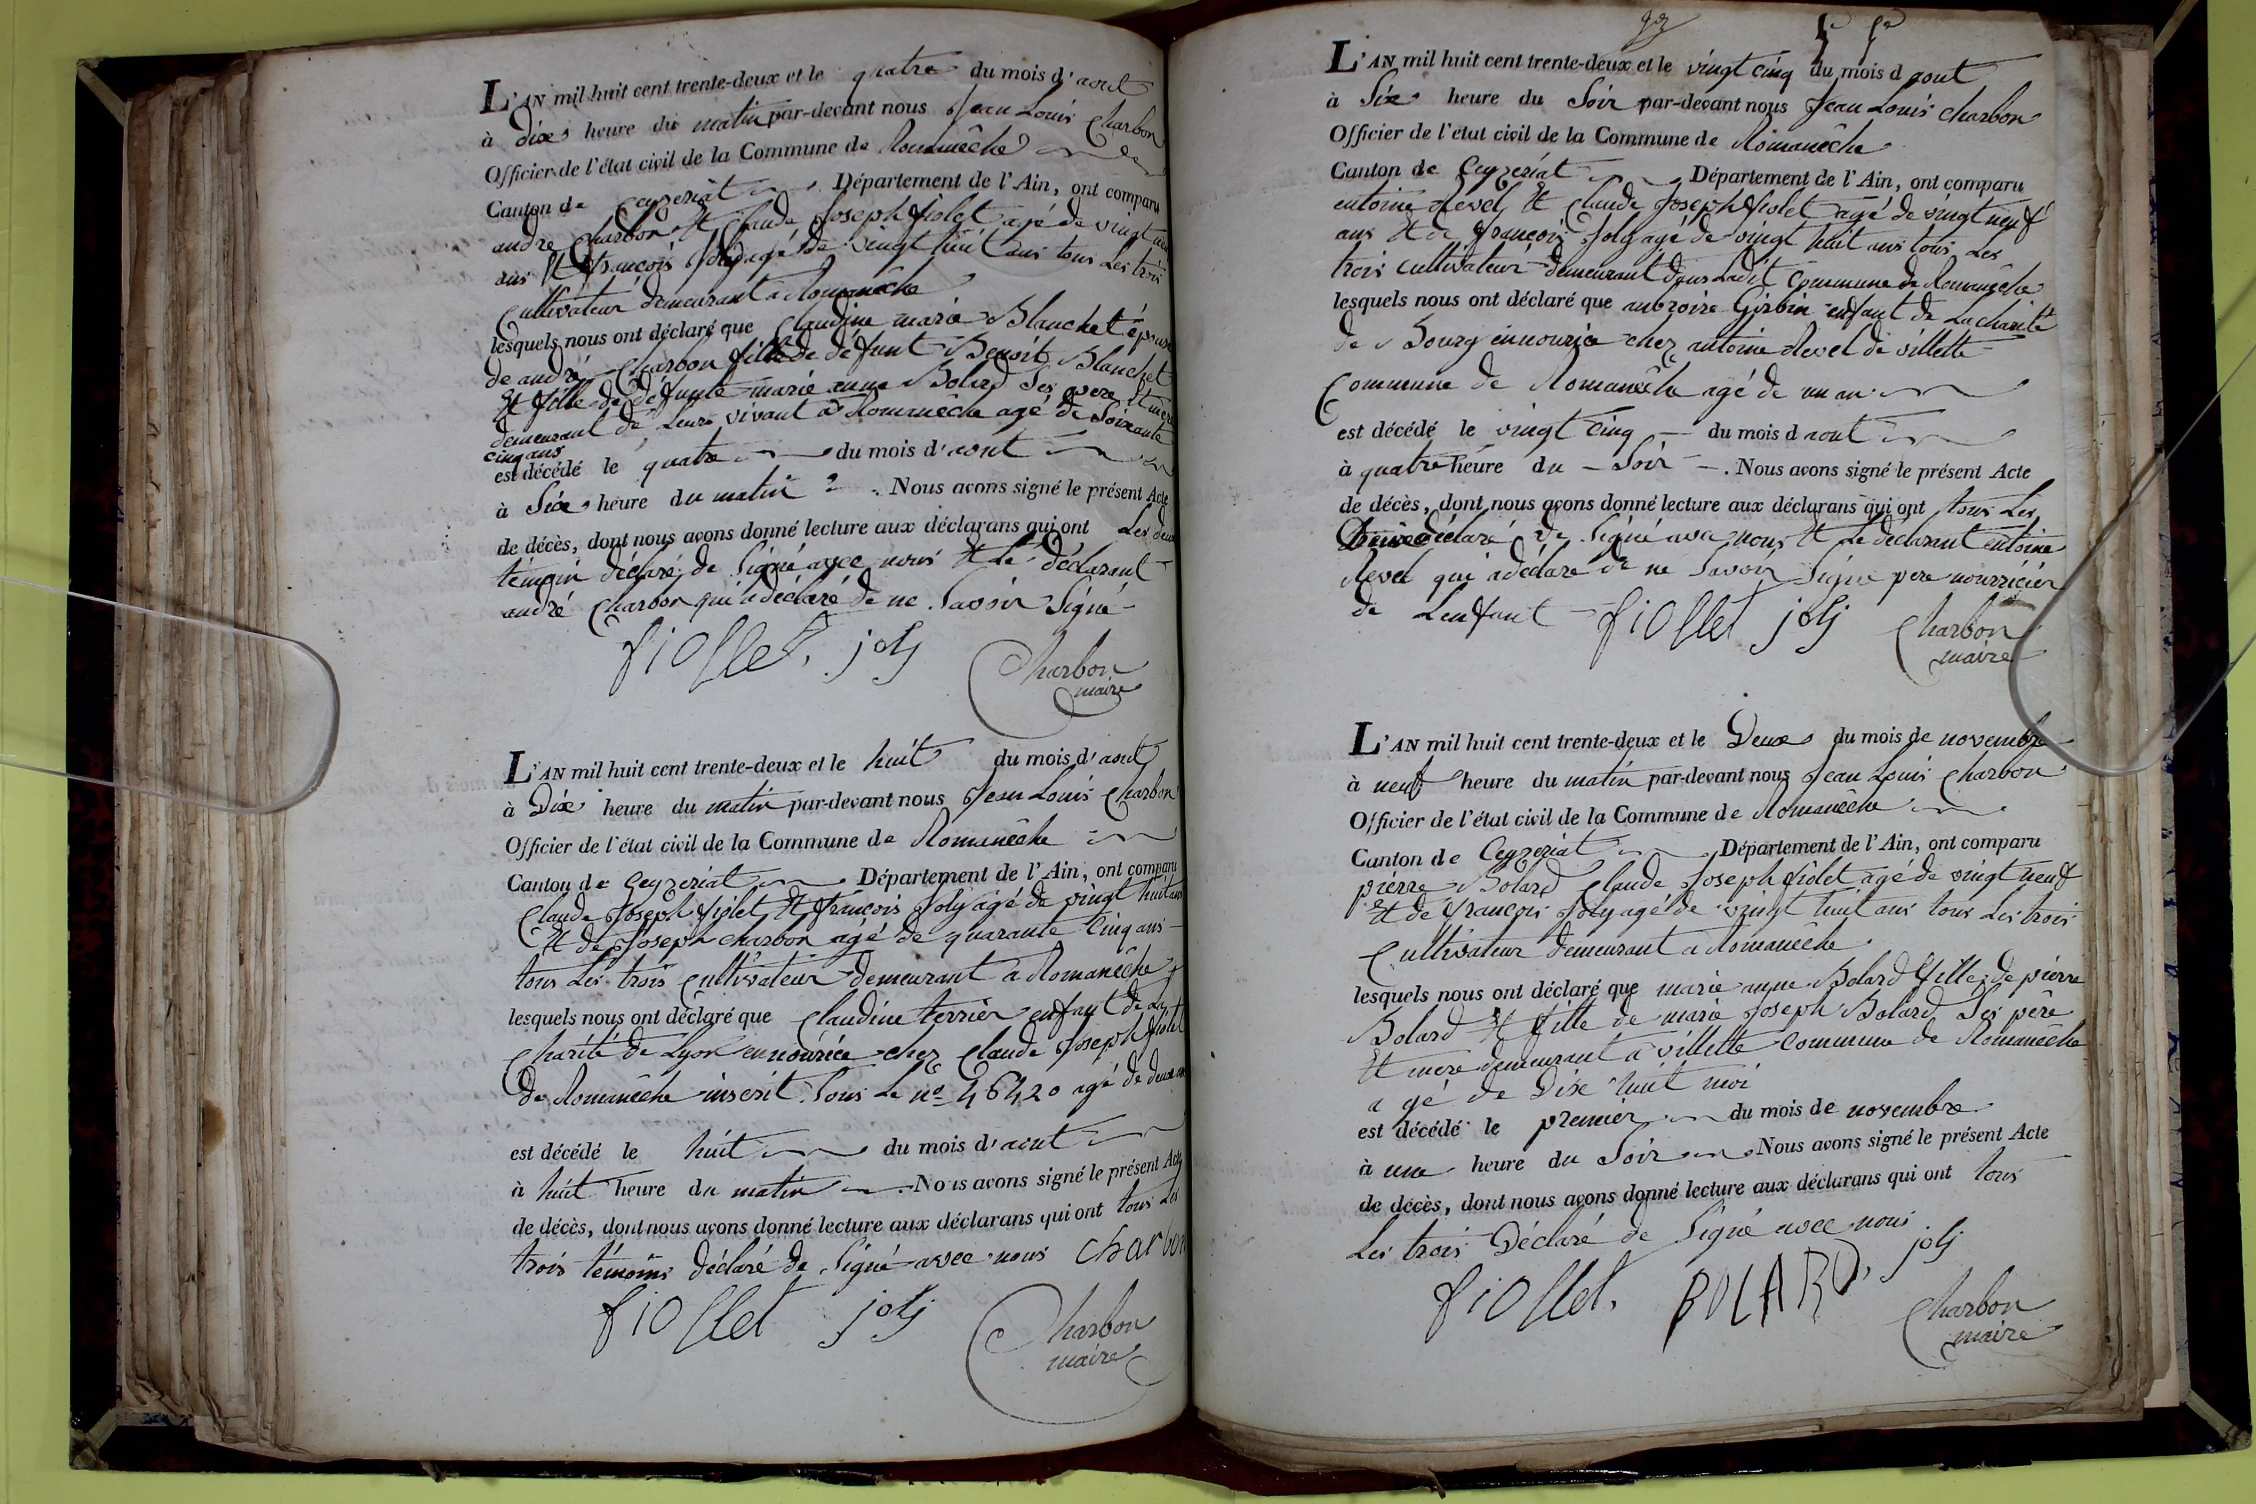 L'AN mil huit cent trente-deux et le quatre du mois d'aout
à dixe heure du matin par-devant nous Jean Louis Charbon
Officier de l'état civil de la Commune de Romanêche
Canton de Ceyzeriat Département de l'Ain, ont comparu
andre Charbon Et Claude Joseph fiolet agé de vingt neuf
ans Et françois Joly agé de vingt huit ans tous Les trois
Cultivateur demeurant a Romanêche
lesquels nous ont déclaré que Claudine marie Blanchet épouse
de andré Charbon fille de défunt Benoit Blanchet
Et fille de défunte marie anne Bolard Ses pere Et mere
demeurant de Leurs vivant a Romanêche agé de Soixante
cinq ans
est décédé le quatre du mois d'aout
à Sixe heure du matin . Nous avons signé le présent Acte
de décès, dont nous avons donné lecture aux déclarans qui ont Les deux
témoin déclaré de Signé avec nous Et Le déclarant
andré Charbon qui a déclaré de ne Savoir Signé
fiollet. joly Charbon
maire
L'AN mil huit cent trente-deux et le huit du mois d'aout
à Dix heure du matin par-devant nous Jean Louis Charbon
Officier de l'état civil de la Commune de Romanêche
Canton de Ceyzeriat Département de l'Ain, ont comparu
Claude Joseph fiolet Et françois Joly agé de vingt huit ans
Et de Joseph charbon agé de quarante Cinq ans
tous Les trois Cultivateur demeurant a Romanêche
lesquels nous ont déclaré que Claudine terrier enfant de La
Charité de Lyon en nourrice chez Claude Joseph fiolet
de Romanêche inscrit Sous Le no 46420 agé de deux ans
est décédé le huit du mois d'aout
à huit heure du matin . Nous avons signé le présent Acte
de décès, dont nous avons donné lecture aux déclarans qui ont tous Les
trois témoins déclaré de Signé avec nous charbon
fiollet joly Charbon
maire
L'AN mil huit cent trente-deux et le vingt cinq du mois d aout
à Sixe heure du Soir par-devant nous Jean Louis Charbon
Officier de l'état civil de la Commune de Romanêche
Canton de Ceyzeriat Département de l'Ain, ont comparu
entoine Revel Et Claude Joseph fiolet agé de vingt neuf
ans Et de françois Joly agé de vingt huit ans tous Les
trois Cultivateur demeurant dans Ladit Commune de Romanêche
lesquels nous ont déclaré que anbroise Girbin enfant de La charité
de Bourg en nourice chez antoine Revel de villette
Commune de Romanêche agé de un an
est décédé le vingt Cinq du mois d aout
à quatre heure du Soir . Nous avons signé le présent Acte
de décès, dont nous avons donné lecture aux déclarans qui ont tous Les
déclaré de Signé avec nous Et Le déclarant entoine
Revel qui a déclaré de ne Savoir Signé pere nourricier
de Lenfant fiollet joly Charbon
maire
L'AN mil huit cent trente-deux et le Deux du mois de novembre
à neuf heure du matin par-devant nous Jean Louis Charbon
Officier de l'état civil de la Commune de Romanêche
Canton de Ceyzeriat Département de l'Ain, ont comparu
pierre Bolard Claude Joseph fiolet agé de vingt neuf
Et de françois Joly agé de vingt huit ans tous Les trois
Cultivateur demeurant a Romanêche
lesquels nous ont déclaré que marie anne Bolard fille de pierre
Bolard Et fille de marie Joseph Bolard Ses père
Et mere demeurant a villette Commune de Romanêche
agé de Dixe huit moi
est décédé le premier du mois de novembre
à une heure du Soir Nous avons signé le présent Acte
de décès, dont nous avons donné lecture aux déclarans qui ont tous
Les trois Déclaré de Signé avec nous
fiollet. BOLARD, joly
Charbon
maire